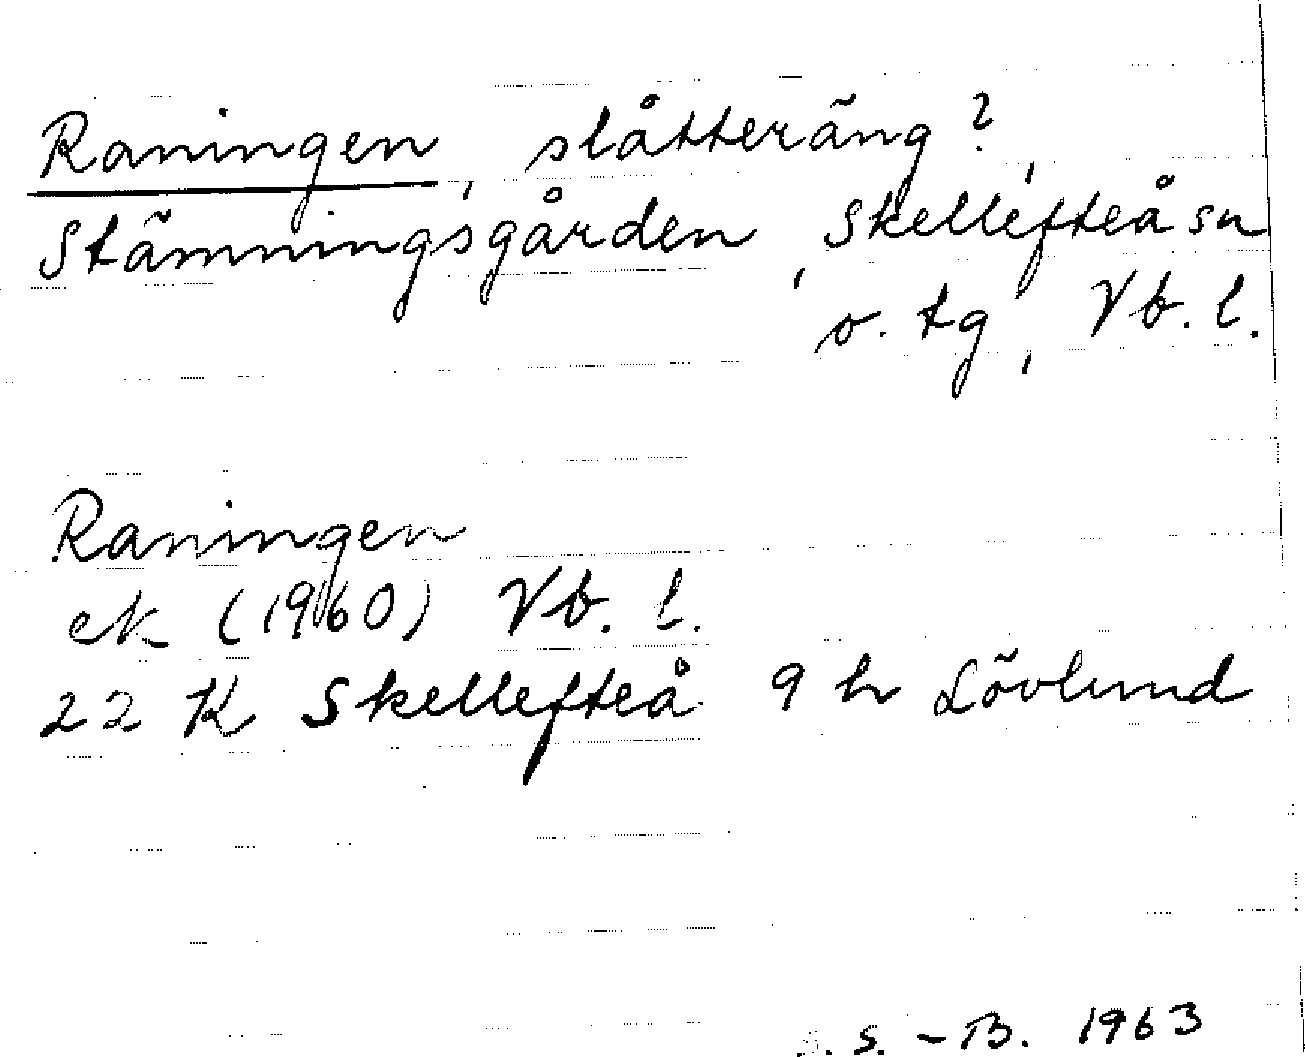 Raningen, slåtteräng?,
Stämningsgården, Skellefteå sn
o. tg, Vb. l.
Raningen
ek (1960) Vb. l.
22 K Skellefteå 9 h Lövlund
S. -B. 1963